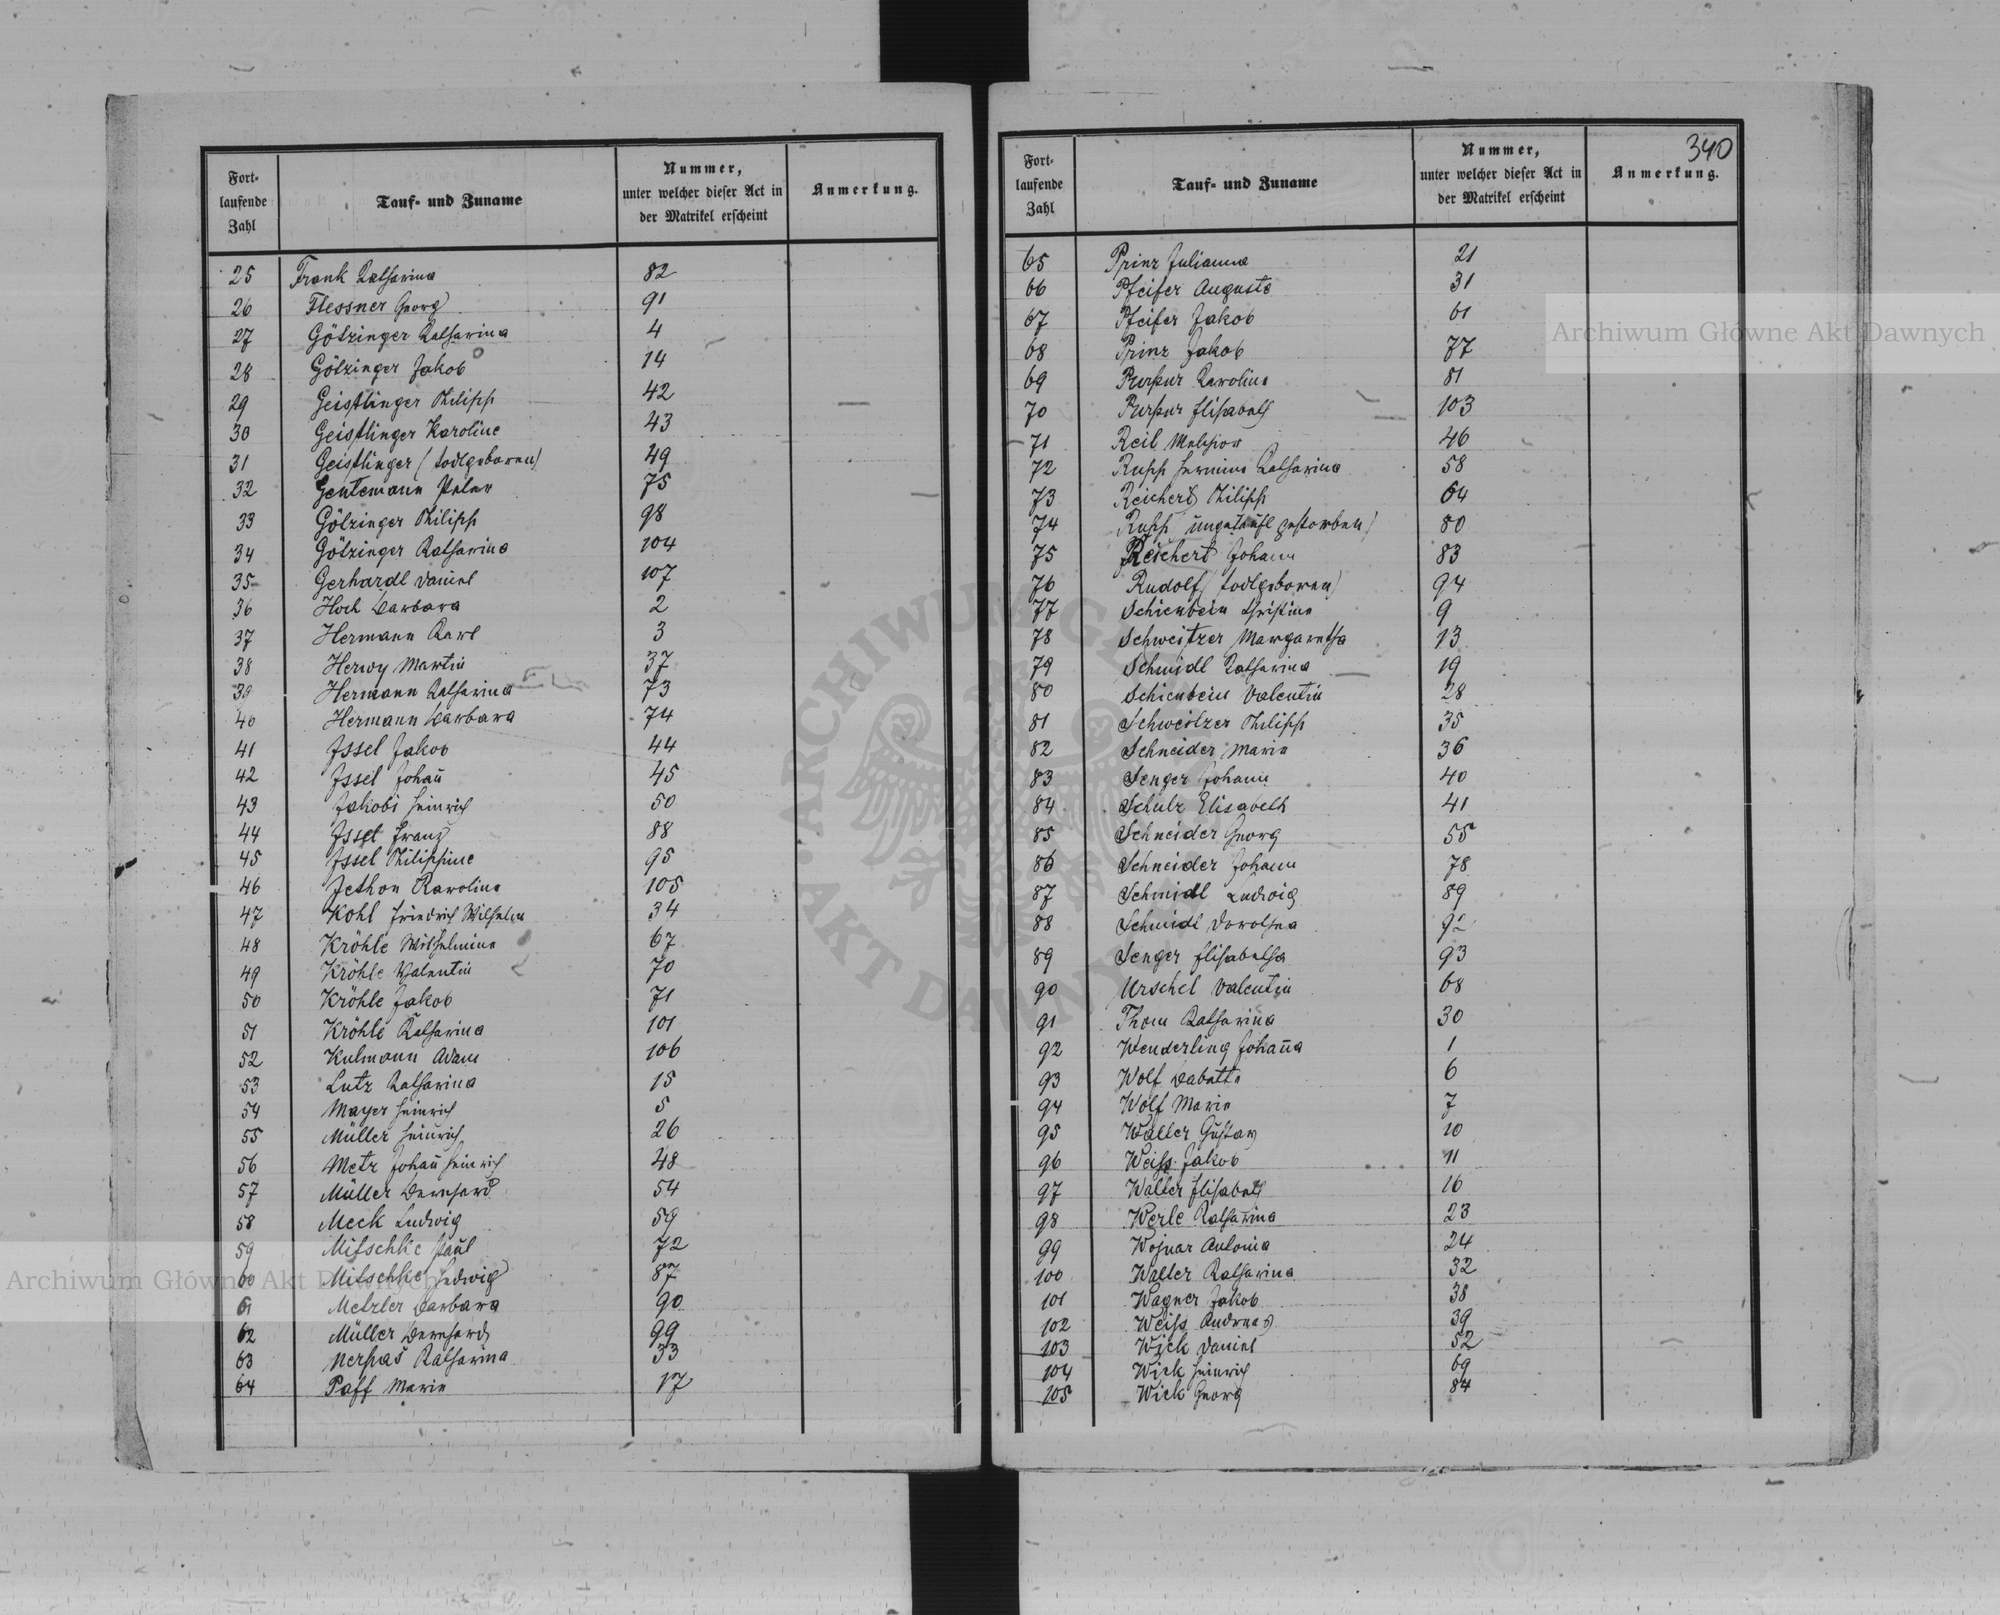 340
Fort-
laufende
Zahl
Tauf- und Zuname
Nummer,
unter welcher dieser Act in
der Matrikel erscheint
Anmerkung.
25 Frank Katharina 82
26 Flessner Georg 91
27 Götzinger Katharina 4
28 Götzinger Jakob 14
29 Geistlinger Philipp 42
30 Geistlinger Karoline 43
31 Geistlinger (todtgeboren) 49
32 Gentemann Peter 75
33 Götzinger Philipp 98
34 Götzinger Katharina 104
35 Gerhardt Daniel 107
36 Hoch Barbara 2
37 Hermann Karl 3
38 Herwy Martin 37
39 Hermann Katharina 73
40 Hermann Barbara 74
41 Issel Jakob 44
42 Issel Johan̄ 45
43 Jakobi Heinrich 50
44 Issel Franz 88
45 Issel Philippine 95
46 Jethon Karoline 105
47 Kohl Friedrich Wilhelm 34
48 Kröhle Wilhelmine 67
49 Kröhle Valentin 70
50 Kröhle Jakob 71
51 Kröhle Katharina 101
52 Kulmann Adam 106
53 Lutz Katharina 15
54 Mayer Heinrich 5
55 Müller Heinrich 26
56 Metz Johan̄ Heinrich 48
57 Müller Bernhard 54
58 Meck Ludwig 59
59 Mitschke Paul 72
60 Mitschke Hedwig 87
61 Metzler Barbara 90
62 Müller Bernhard 99
63 Nerpas Katharina 33
64 Paff Marie 17
Fort-
laufende
Zahl
Tauf- und Zuname
Nummer,
unter welcher dieser Act in
der Matrikel erscheint
Anmerkung.
65 Prinz Julianna 21
66 Pfeifer Auguste 31
67 Pfeifer Jakob 61
68 Prinz Jakob 77
69 Karoline 81
70 Elisabeth 103
71 Reil Melchior 46
72 Rupp Hermine Katharina 58
73 Reichert Philipp 64
74 Rupp ungetauft gestorben) 80
75 Reichert Johann 83
76 Rudolf (todtgeboren) 94
77 Schienbein Christine 9
78 Schweitzer Margaretha 13
79 Schmidt Katharina 19
80 Schienbein Valentin 28
81 Schweitzer Philipp 35
82 Schneider Marie 36
83 Senger Johann 40
84 Schulz Elisabeth 41
85 Schneider Georg 55
86 Schneider Johann 78
87 Schmidt Ludwig 89
88 Schmidt Dorothea 92
89 Senger Elisabetha 93
90 Urschel Valentin 68
91 Thom Katharina 30
92 Wenderling Johan̄a 1
93 Wolf Babette 6
94 Wolf Marie 7
95 Walter Gustav 10
96 Weiss Jakob 11
97 Walter Elisabeth 16
98 Werle Katharina 23
99 Wojnar Antonia 24
100 Walter Katharina 32
101 Wagner Jakob 38
102 Weiss Andreas 39
103 Wick Daniel 52
104 Wick Heinrich 69
105 Wick Georg 84
Archiwum Główne Akt Dawnych
Archiwum Główne Akt Dawnych